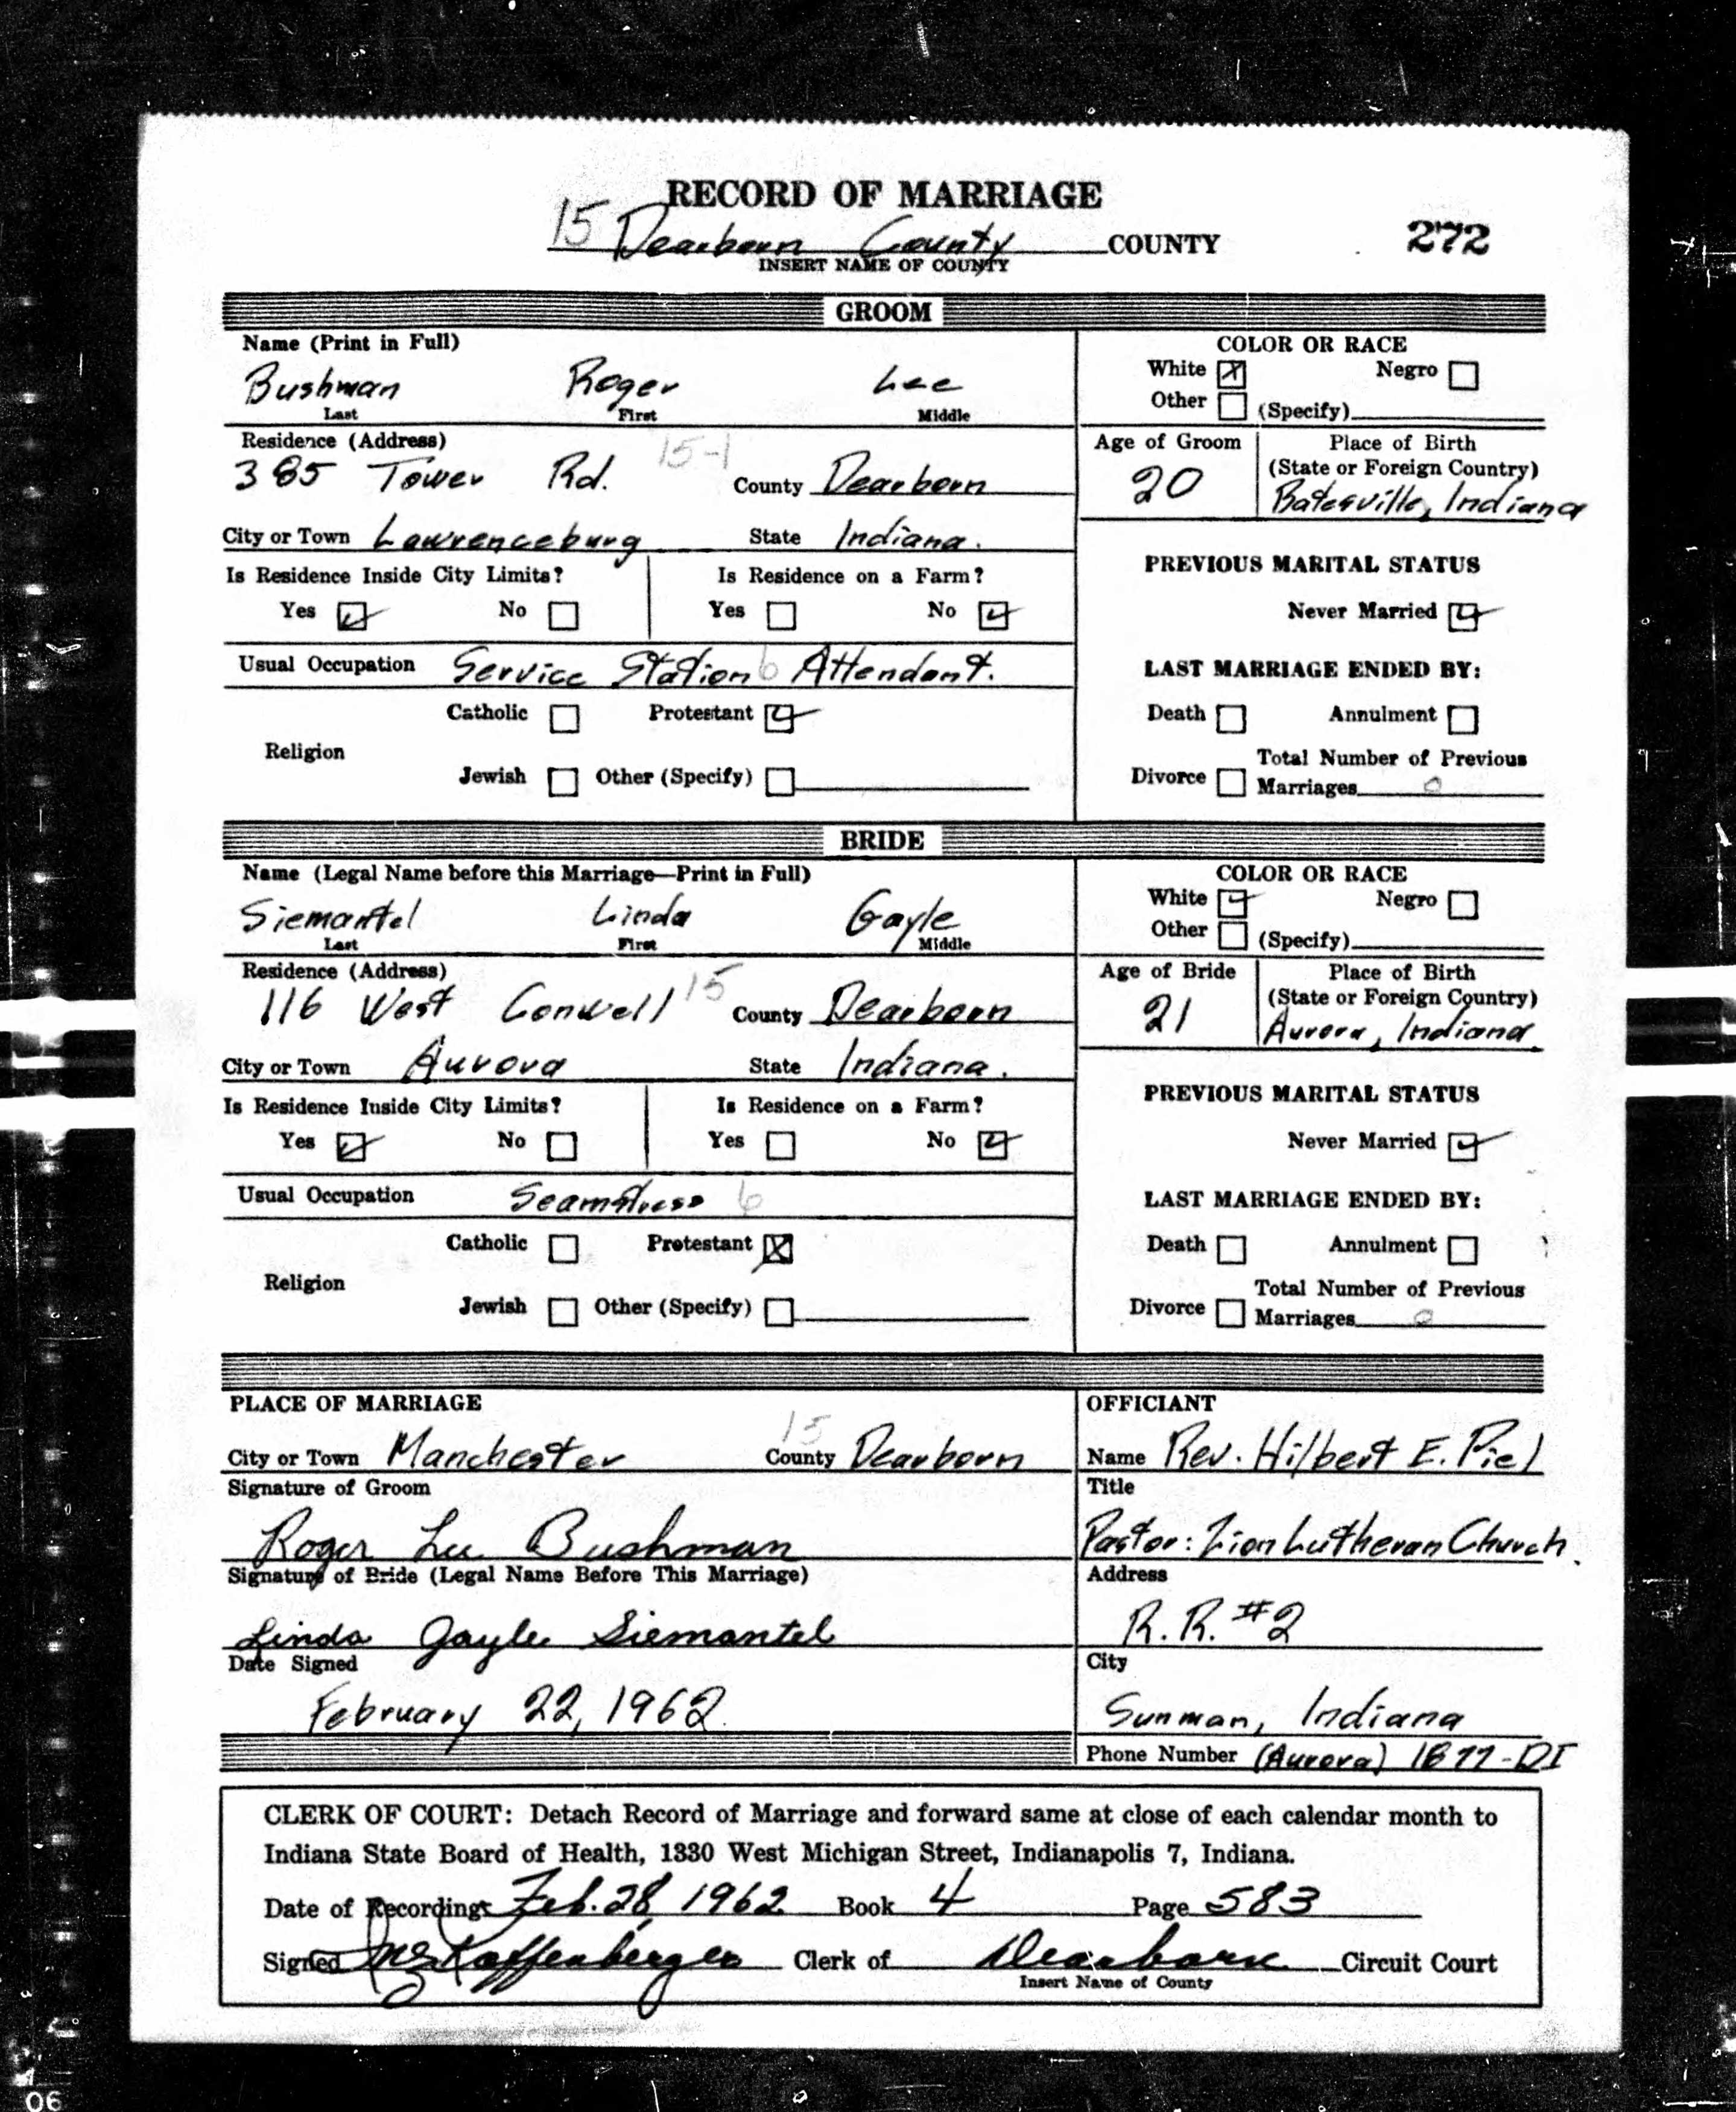 RECORD OF MARRIAGE
15 Dearborn County COUNTY 272
INSERT NAME OF COUNTY
GROOM
Name (Print in Full)
Bushman Roger Lee
Last First Middle
COLOR OR RACE
White Negro
Other (Specify)
Residence (Address)
385 Tower Rd. 15-1 County Dearborn
Age of Groom
20
Place of Birth
(State or Foreign Country)
Batesville, Indiana
City or Town Lawrenceburg State Indiana.
Is Residence Inside City Limits? Is Residence on a Farm?
Yes No Yes No
PREVIOUS MARITAL STATUS
Never Married
Usual Occupation Service Station 6 Attendant.
LAST MARRIAGE ENDED BY:
Catholic Protestant
Religion
Jewish Other (Specify)
Death Annulment
Total Number of Previous
Divorce Marriages 0
BRIDE
Name (Legal Name before this Marriage—Print in Full)
Siemantel Linda Gayle
Last First Middle
COLOR OR RACE
White Negro
Other (Specify)
Residence (Address)
116 West Conwell 15 County Dearborn
Age of Bride
21
Place of Birth
(State or Foreign Country)
Aurora, Indiana.
City or Town Aurora State Indiana.
Is Residence Inside City Limits? Is Residence on a Farm?
Yes No Yes No
PREVIOUS MARITAL STATUS
Never Married
Usual Occupation Seamstress 6
LAST MARRIAGE ENDED BY:
Catholic Protestant
Religion
Jewish Other (Specify)
Death Annulment
Total Number of Previous
Divorce Marriages 0
PLACE OF MARRIAGE
City or Town Manchester 15 County Dearborn
Signature of Groom
Roger Lee Bushman
Signature of Bride (Legal Name Before This Marriage)
Linda Gayle Siemantel
Date Signed
February 22, 1962.
OFFICIANT
Name Rev. Hilbert E. Piel
Title
Pastor: Zion Lutheran Church.
Address
R.R. #2
City
Sunman, Indiana
Phone Number (Aurora) 1877-
CLERK OF COURT: Detach Record of Marriage and forward same at close of each calendar month to
Indiana State Board of Health, 1330 West Michigan Street, Indianapolis 7, Indiana.
Date of Recording Feb. 28, 1962 Book 4 Page 583
Signed Kaffenberger Clerk of Dearborn Circuit Court
Insert Name of County
06